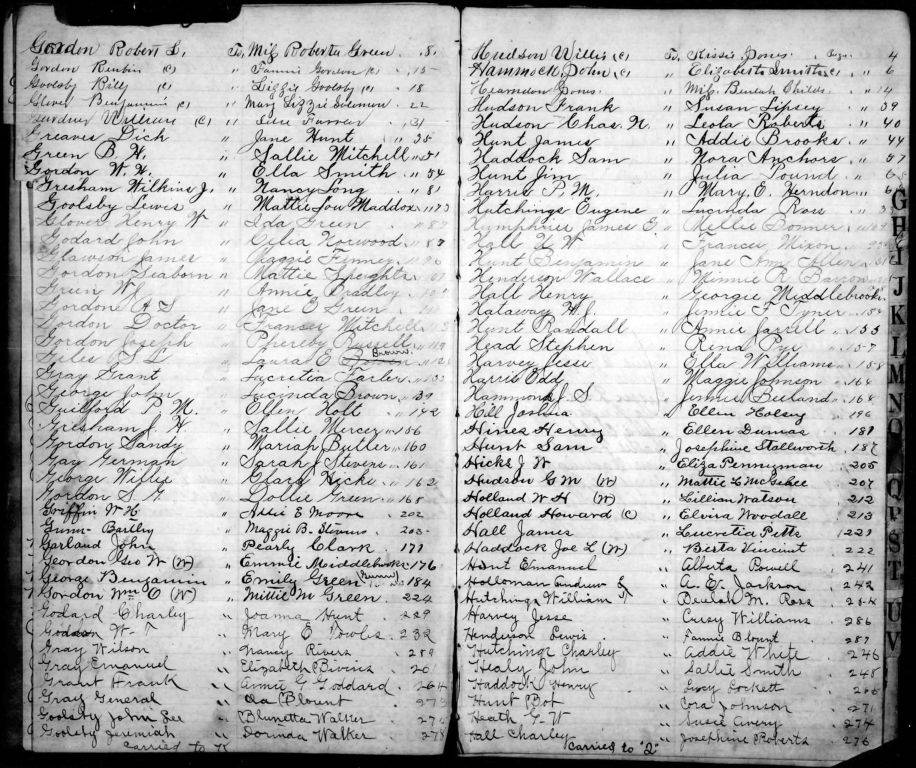 Gordon Robert L. To, Miss Roberta Green 8
Gordon Reubin (c) " Fannie Gordon (c) 15
Goolsby Billy (c) " Lizzie Goolsby (c) 18
Glover Benjamin (c) " Mary Lizzie Solomon 22
William (c) " Farrar 31
Greaves Dick " Jane Hunt " 35
Green B. H. " Sallie Mitchell " 51
Gordon W. W. " Ella Smith " 54
Gresham Wilkins J. " Nancy Long " 81
Goolsby Lewis " Mattie Lou Maddox " 83
Glover Henry W " Ida Green "
Godard John " Celia Norwood " 87
Glawson James " Maggie Finney
Gordon Seaborn " Mattie Speights
Green W " Annie Bradley
Gordone A S " Jane E Green
Gordon Doctor " Francis Mitchell
Gordon Joseph " Phereby Russell
Giles S L " Laura E Brown
Gray Grant " Lucretia Farler
George John " Lucinda Brown
Guilford P. M. " Ellen Holt " 142
Gresham J. H. " Sallie Mercer " 156
Gordon Sandy " Mariah Butler " 160
Gay German " Sarah J Stevens " 161
George Willie " Clara Hicks " 162
Gordon S. G. " Dollie Green " 165
Griffin W H " Addie E Moore 202
Gunn Bartley " Maggie B. Stevens 203
Garland John " Pearly Clark 171
Geordon Geo W (W) " Emmie Meiddlebrooks 176
George Benjamin " Emily Green 184
Gordon Wm O (W) " Mittie M Green 224
Godard Charley " Joanna Hunt 229
W. T " Mary E Towls 232
Gray Wilson " Nancy Rivers 259
Gray Emanuel " Elizabeth Bivins 26
Grant Frank " Annie G Goddard 264
Gray General " Ola Blount 273
Goolsby John Lee " Blunetta Walker 27
Goolsby Jeremiah " Dorinda Walker 278
carried to K
Hudson Willis (c) To, Kissie Jones Page 4
Hammock John (c) " Elizabeth Smith (c) " 6
Hearndon Jones " Miss Beulah Childs " 14
Hudson Frank " Susan Lipsey " 39
Hudson Chas. N. " Leola Roberts " 40
Hunt James " Addie Brooks " 44
Haddock Sam " Nora Anchors " 57
Hunt Jim " Julia Pound " 6
Harris P. M. " Mary. E. Herndon " 6
Hutchings Eugene " Lucinda Ross "
Humphries James E. " Mellie Bonner
Hall W " Frances Mixon
Hunt Benjamin " Jane Ann Allen
Henderson Wallace " Minnie R Barron
Hall Henry " Georgie Middlebrooks
Halaway W. J. " Jimmie T Tyner
Hunt Randall " Annie Jarrell " 155
Head Stephen " Rena Pye " 157
Harvey Jesse " Ella Williams " 158
Harris Odd " Maggie Johnson " 164
Hammond J. S. " Jennie Beeland 168
Hill Joshua " Ellen Holsey 196
Hines Henry " Ellen Dumas 181
Hunt Sam " Josephine Stallworth 187
Hicks J. W " Eliza Pennyman 205
Hudson G M (W) " Mattie L McGehee 207
Holland W H (W) " Lillian Watson 212
Holland Howard (c) " Elvira Woodall 213
Hall James " Lucretia Pitts 221
Haddock Joe L (W) " Berta Vincent 222
Hunt Emanuel " Alberta Powell 241
Holloman Andrew " A. E. Jackson 242
Hutchings William T " Beulah M. Ross 254
Harvey Jesse " Curry Williams 286
Henderson Lewis " Fannie Blount 287
Hutchings Charley " Addie White 246
Healy John " Sallie Smith 248
Haddock Henry " Lucy Lockett
Hunt Bot " Cora Johnson 271
Heath G. W " Susie Avery 274
Hall Charley " Josephine Roberts 276
carried to "2"
G
H
I
J
K
L
M
N
O
Q
P
S
T
U
V